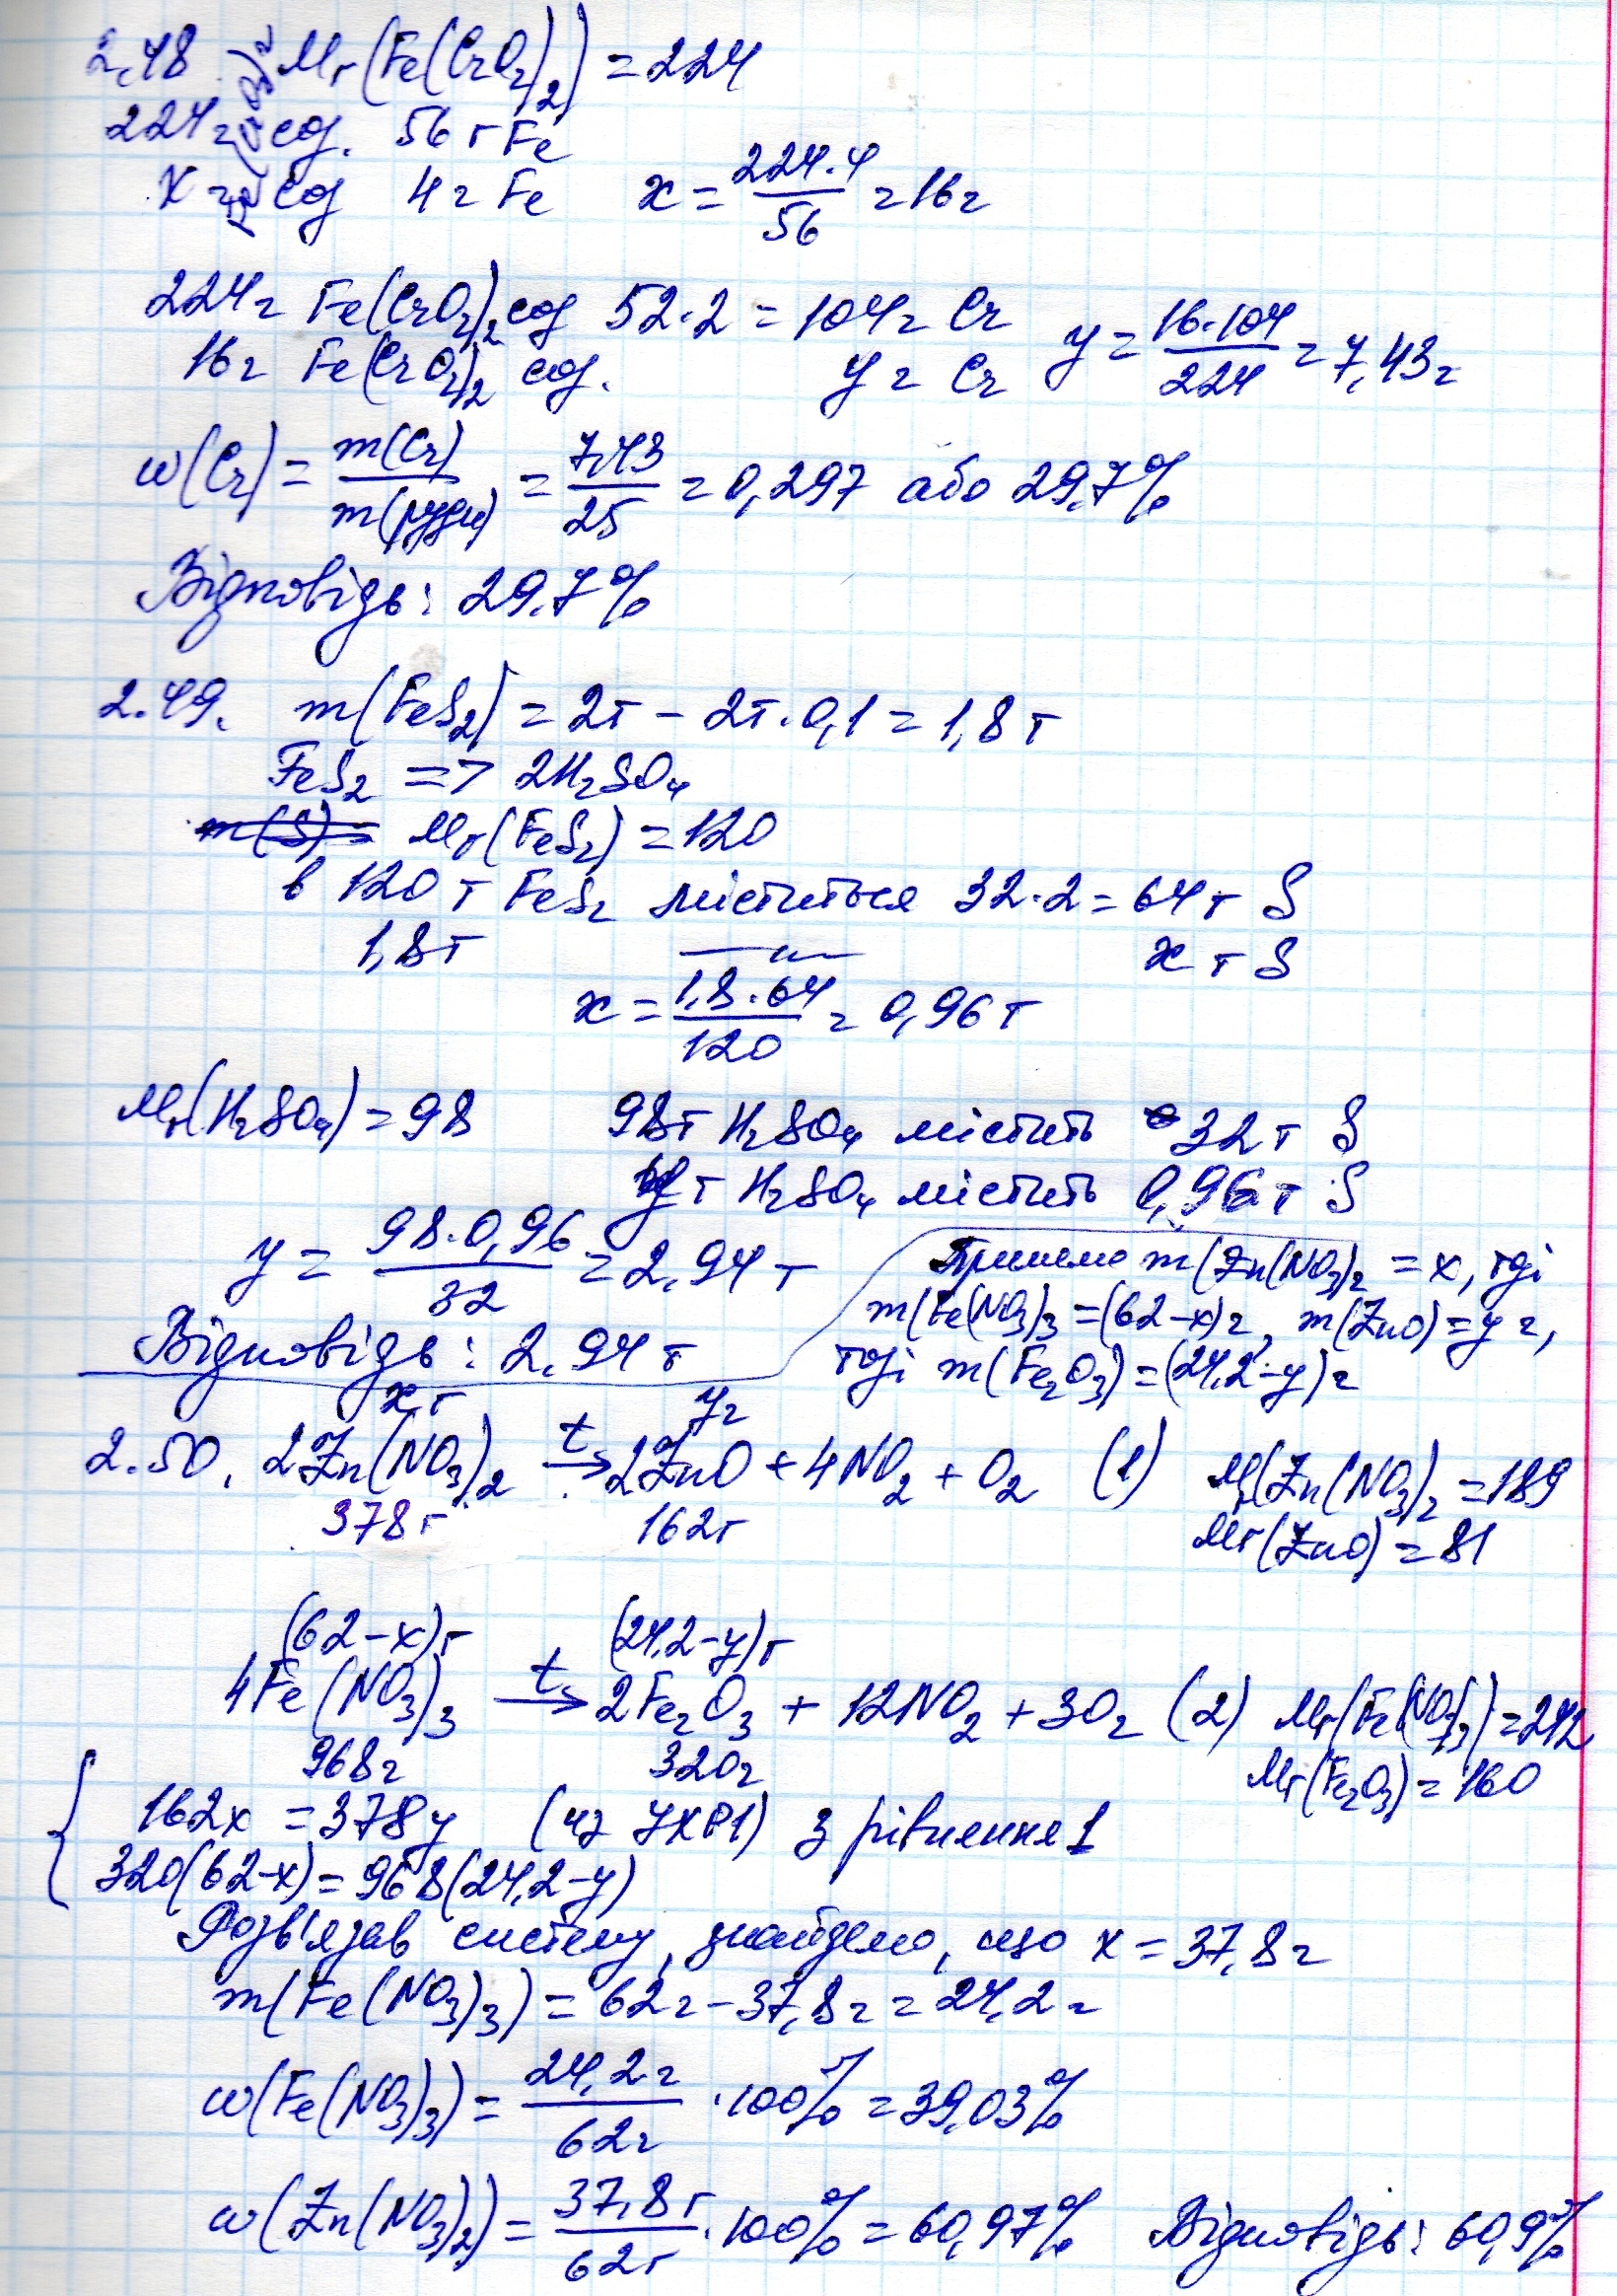 2.48 Mr(Fe(CrO2)2) = 224
224г Fe(CrO2)2 сод. 56 г Fe
X г сод 4г Fe x = 224·4/56 = 16г
224г Fe(CrO2)2 сод 52·2 = 104г Cr y = 16·104/224 = 7,43г
16г Fe(CrO2)2 сод. y г Cr
w(Cr) = m(Cr)/m(руди) = 7,43/25 = 0,297 або 29,7%
Відповідь: 29,7%
2.49. m(FeS2) = 2т - 2т·0,1 = 1,8 т
FeS2 => 2H2SO4
m(S) = Mr(FeS2) = 120
в 120 т FeS2 міститься 32·2 = 64 т S
1,8т —"— x т S
x = 1,8·64/120 = 0,96 т
Mr(H2SO4) = 98 98т H2SO4 містить 32 т S
y т H2SO4 містить 0,96 т S
y = 98·0,96/32 = 2,94 т
Відповідь: 2,94 т
Приймемо m(Zn(NO3)2 = x, тоді
m(Fe(NO3)3 = (62-x)г, m(ZnO) = y г,
тоді m(Fe2O3) = (24,2-y)г
x г y г
2.50. 2Zn(NO3)2 t→ 2ZnO + 4NO2 + O2 (1) Mr(Zn(NO3)2 = 189
378 г 162г Mr(ZnO) = 81
(62-x)г (24,2-y)г
4Fe(NO3)3 t→ 2Fe2O3 + 12NO2 + 3O2 (2) Mr(Fe(NO3)3) = 242
968г 320г Mr(Fe2O3) = 160
162x = 378y (из УХР1) з рівняння 1
320(62-x) = 968(24,2-y)
Розв'язав систему, знайдемо, що x = 37,8г
m(Fe(NO3)3) = 62г - 37,8г = 24,2г
w(Fe(NO3)3) = 24,2г/62г ·100% = 39,03%
w(Zn(NO3)2) = 37,8г/62г ·100% = 60,97% Відповідь: 60,9%